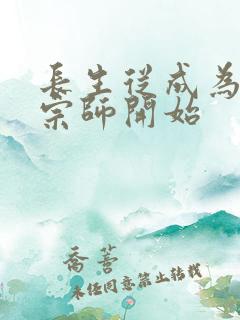 長生從成為
宗師開始
喬萱
未經同意禁止轉載